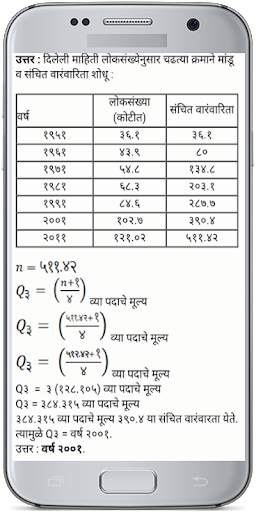 उत्तर : दिलेली माहिती लोकसंख्येनुसार चढत्या क्रमाने मांडू
व संचित वारंवारिता शोधू :
वर्ष लोकसंख्या (कोटीत) संचित वारंवारिता
१९५१ ३६.१ ३६.१
१९६१ ४३.९ ८०
१९७१ ५४.८ १३४.८
१९८१ ६८.३ २०३.१
१९९१ ८४.६ २८७.७
२००१ १०२.७ ३९०.४
२०११ १२१.०२ ५११.४२
n = ५११.४२
Q₃ = (n+१/४) व्या पदाचे मूल्य
Q₃ = (५११.४२+१/४) व्या पदाचे मूल्य
Q₃ = (५१२.४२+१/४) व्या पदाचे मूल्य
Q३ = ३ (१२८.१०५) व्या पदाचे मूल्य
Q३ = ३८४.३१५ व्या पदाचे मूल्य
३८४.३१५ व्या पदाचे मूल्य ३९०.४ या संचित वारंवारता येते.
त्यामुळे Q३ = वर्ष २००१.
उत्तर : वर्ष २००१.